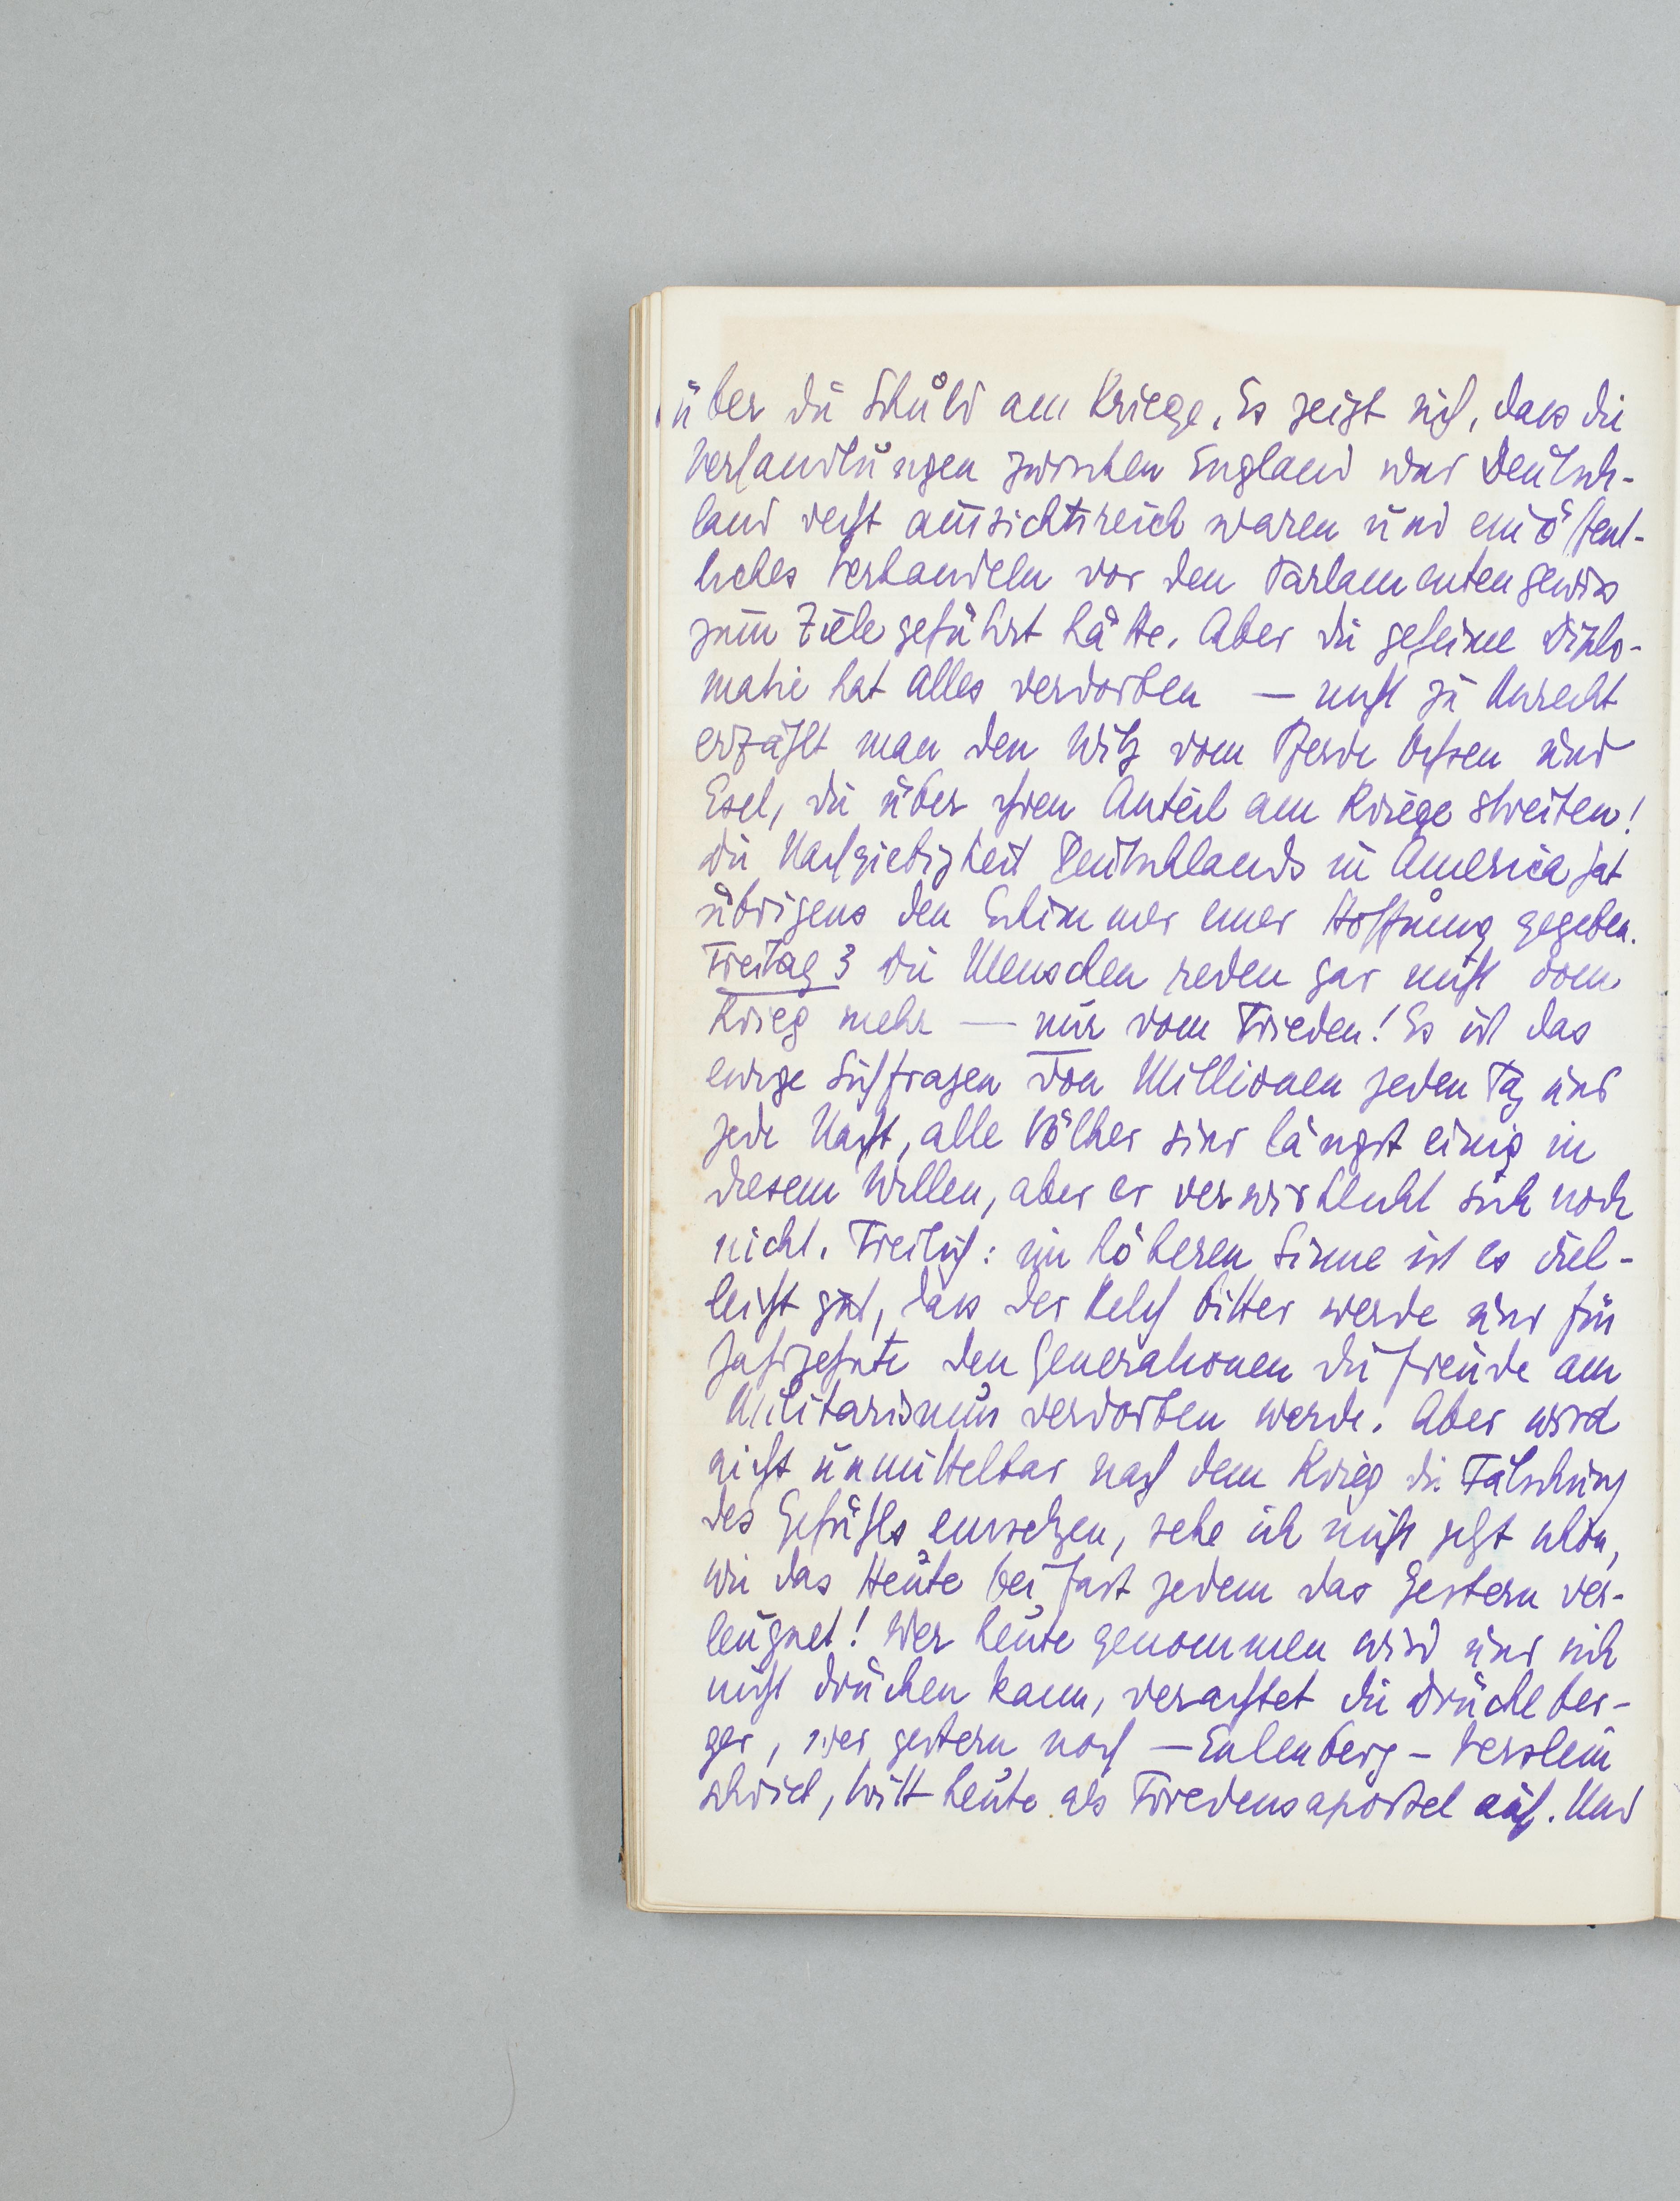 über die Schuld am Kriege. Es zeigt sich, dass die
Verhandlungen zwischen England und Deutsch-
land recht aussichtsreich waren und ein öffent-
liches Verhandeln vor den Parlamenten gewiss
zum Ziele geführt hätte. Aber die geheime Diplo-
matie hat Alles verdorben — nicht zu Unrecht
erzählt man den Witz vom Pferde Ochsen und
Esel, die über ihren Anteil am Kriege streiten!
Die Nachgiebigkeit Deutschlands in America hat
übrigens den Schimmer einer Hoffnung gegeben.
Freitag 3 Die Menschen reden gar nicht vom
Krieg mehr — nur vom Frieden! Es ist das
ewige Sichfragen von Millionen jeden Tag und
jede Nacht, alle Völker sind längst einig in
diesem Willen, aber er verwirklicht sich noch
nicht. Freilich: im höheren Sinne ist es viel-
leicht gut, dass der Kelch bitter werde und für
Jahrzehnte den Generationen die Freude am
Militarismus verdorben werde. Aber wird
nicht unmittelbar nach dem Krieg die Fälschung
des Gefühls einsetzen, sehe ich nicht jetzt schon,
wie das Heute bei fast jedem das Gestern ver-
leugnet! Wer heute genommen wird und sich
nicht drücken kann, verachtet die Drückeber-
ger, wer gestern noch — Eulenberg – Verslein
schrieb, tritt heute als Friedensapostel auf. Und